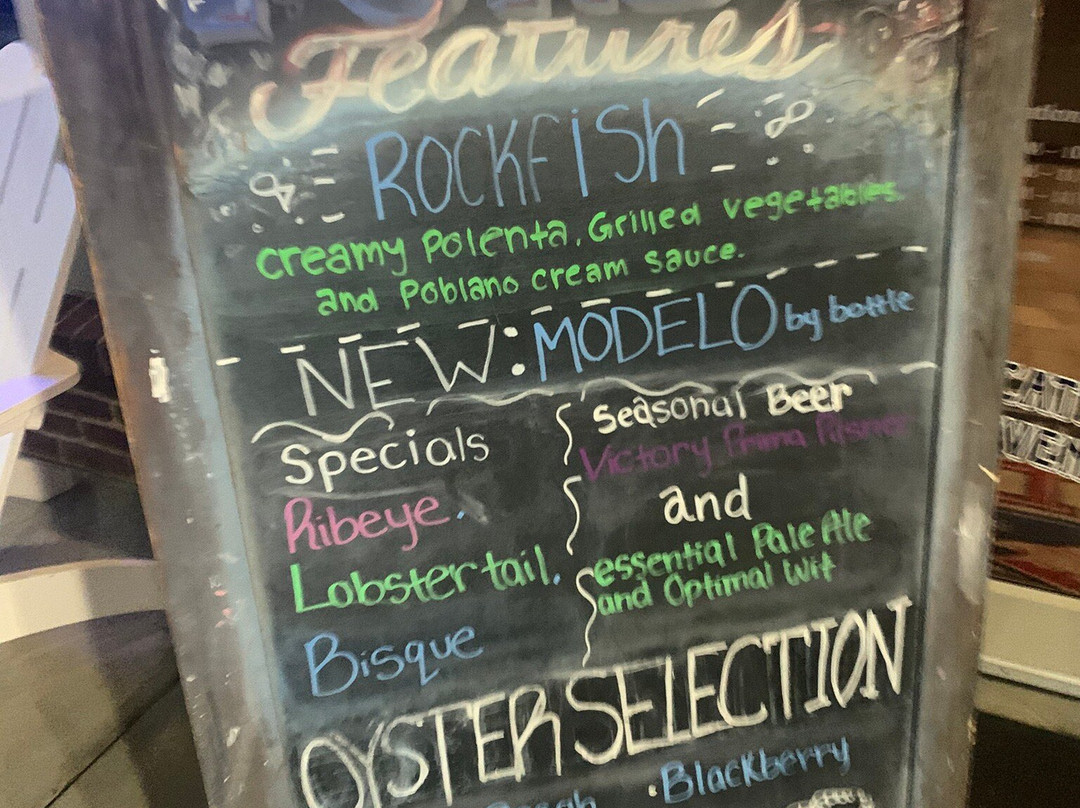 Features
ROCKFISh
creamy Polenta, Grilled vegetables.
and Poblano cream sauce.
NEW: MODELO by bottle
Specials
Ribeye.
Lobster tail.
Bisque
Seasonal Beer
Victory Prima Pilsner
and
essential Pale Ale
and Optimal Wit
OYSTER SELECTION
• Blackberry